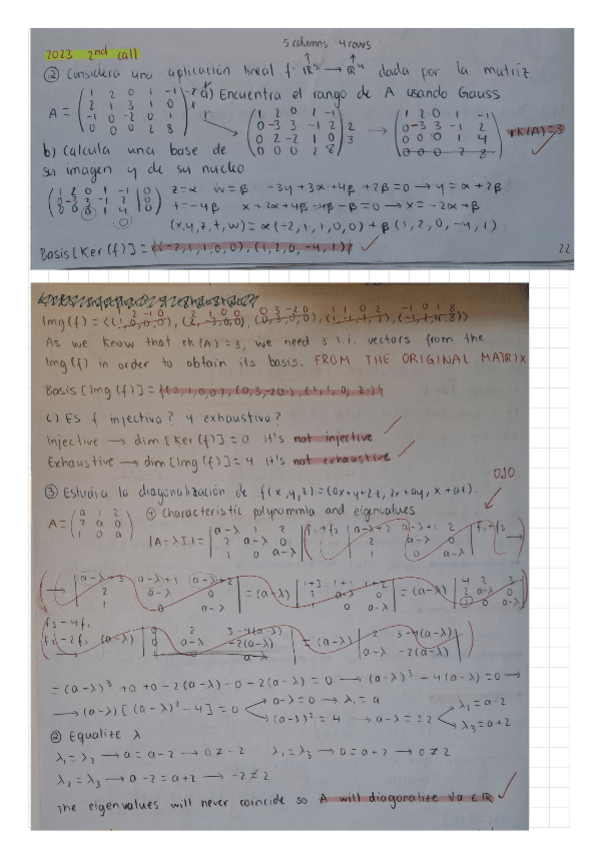 5 columns 4 rows
2023 2nd call
② Considera una aplicación lineal f: ℝ⁵ → ℝ⁴ dada por la matriz
A = ( 1 2 0 1 -1 / 2 1 3 1 0 / -1 0 -2 0 1 / 0 0 0 2 8 ) a) Encuentra el rango de A usando Gauss
( 1 2 0 1 -1 / 0 -3 3 -1 2 / 0 2 -2 1 0 / 0 0 0 2 8 ) 2 3 → ( 1 2 0 1 -1 / 0 -3 3 -1 2 / 0 0 0 1 4 / 0 0 0 2 8 ) rk(A)=3
b) Calcula una base de
su imagen y de su nucleo
z=α w=β -3y+3α+4β+2β=0 → y=α+2β
t=-4β x+2α+4β-4β-β=0 → x=-2α+β
(x,y,z,t,w)=α(-2,1,1,0,0)+β(1,2,0,-4,1)
Basis[Ker(f)]={(-2,1,1,0,0),(1,2,0,-4,1)}
22
Img(f)=
As we know that rk(A)=3, we need 3 l.i. vectors from the
Img(f) in order to obtain its basis. FROM THE ORIGINAL MATRIX
Basis[Img(f)]=
c) Es f injectiva? y exhaustiva?
Injective → dim[Ker(f)]=0 it's not injective
Exhaustive → dim[Img(f)]=4 it's not exhaustive
③ Estudia la diagonalización de f(x,y,z)=(ax+y+2z, 2x+ay, x+az).
0,10
A = ( a 1 2 / 2 a 0 / 1 0 a ) ① Characteristic polynummia and eigenvalues
|A-λI|= | a-λ 1 2 / 2 a-λ 0 / 1 0 a-λ |
=(a-λ)³+0+0-2(a-λ)-0-2(a-λ)=0 → (a-λ)³-4(a-λ)=0 →
→ (a-λ)[(a-λ)²-4]=0 a-λ=0 → λ₁=a
(a-λ)²=4 → a-λ=±2 λ₂=a-2
λ₃=a+2
② Equalize λ
λ₁=λ₂ → a=a-2 → 0≠-2 λ₁=λ₃ → a=a+2 → 0≠2
λ₂=λ₃ → a-2=a+2 → -2≠2
The eigenvalues will never coincide so A will diagonalize ∀a∈ℝ